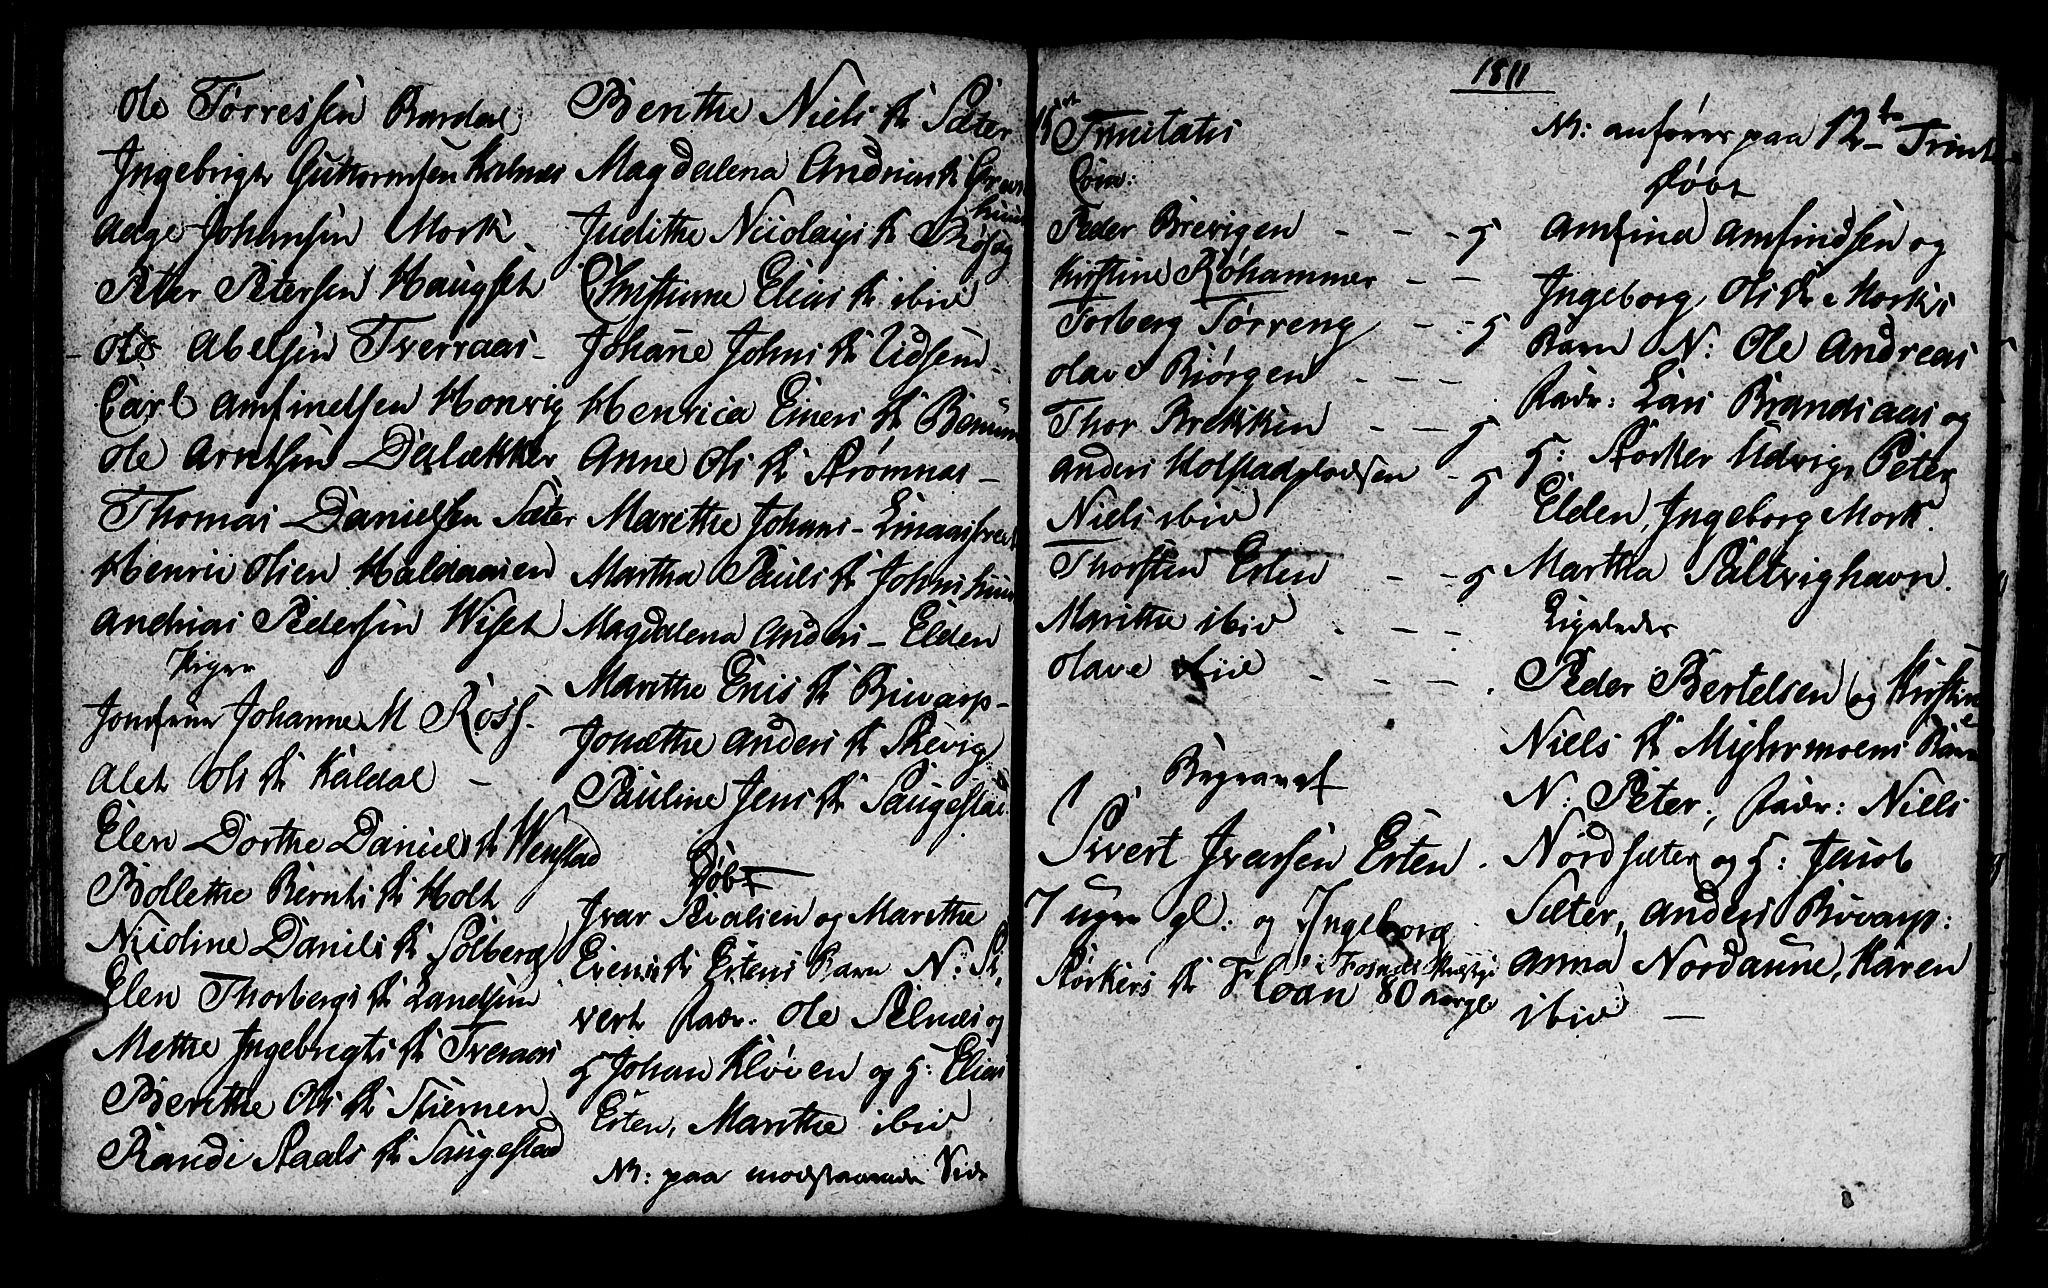 Ole Tørressen Bardal
Ingebrigt Guttormsen Kalnes
Aage Johansen Mork
Peter Petersen Haugset
Ole Abelsen Tverraas
Carl Amfindsen Honvig
Ole Arntsen Dalækker
Thomas Danielsen Sæter
Henric Olsen Haldaasen
Andrias Pedersen Wiset
Piger
Jomfrue Johanne M Ross
Alet Ols Dr Kaldal
Elen Dorthe Daniels Dr Wenstad
Bollethe Bernts Dr Holt
Nicoline Daniels Dr Solberg
Elen Thorbergs Dr Landsem
Methe Ingebregts Dr Tveraas
Berithe Ols Dr Stiemen
Randi Paals Dr Saugestad
Berithe Niels Dr Sæter
Magdalena Andrias Dr
Judithe Nicolays Dr Røsæg
Christianne Elias Dr ibid
Johane Johns Dr Udsem
Henrica Einers Dr
Anne Ols Dr Strømnæs
Marithe Johans
Martha Pauls Dr
Magdalena Anders Elden
Marithe Enis Dr Buvarp
Jonethe Anders Dr Skevig
Pauline Jens Dr Saugestad
Døbt
Ivar og Marithe
Evens Dr Estens Barn N: Si
vert Fadr: Ole Selnæs og
G Johan Kløven og G: Elias
Esten, Marithe ibid
NB: paa modstaaende Side
1811
15de Trinitatis
Com:
Peder Brevigen - - - G
Kirstine Røhammer - -
Torberg Tørreng - - G
Olave Biørgen - - -
Thor Brekken - - G
Anders Holstadplodsen - G
Niels ibid
Thorsten Esten - - G
Marithe ibid - - -
Olave ibid - - -
Begravet
Sivert Ivarsen Esten
7 uger gl: og Ingeborg
Størkers Dr Floan i Fosnæs Præstgi 80 Aar gl:
NB: anføres paa 12te Trinit
Døbt
Amfind Amfindsen og
Ingeborg Ols Dr Morks
Barn N: Ole Andreas
Fadr: Lars Brandsaas og
G: Størker Udvig, Peter
Elden, Ingeborg Mork
Martha Saltvighavn
Ligeledes
Peder Bertelsen og Kirstine
Niels Dr Barn
N: Peter, Fadr: Niels
Nordsæter og G: Jacob
Sæter, Anders Buvarp
Anna Nordaune, Karen
ibid